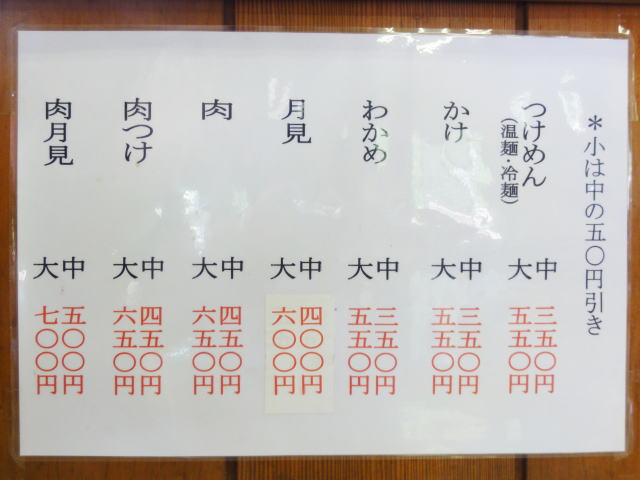 ＊小は中の五〇円引き
つけめん
（温麺・冷麺）
中
三五〇円
大
五五〇円
かけ
中
三五〇円
大
五五〇円
わかめ
中
三五〇円
大
五五〇円
月見
中
四〇〇円
大
六〇〇円
肉
中
四五〇円
大
六五〇円
肉つけ
中
四五〇円
大
六五〇円
肉月見
中
五〇〇円
大
七〇〇円